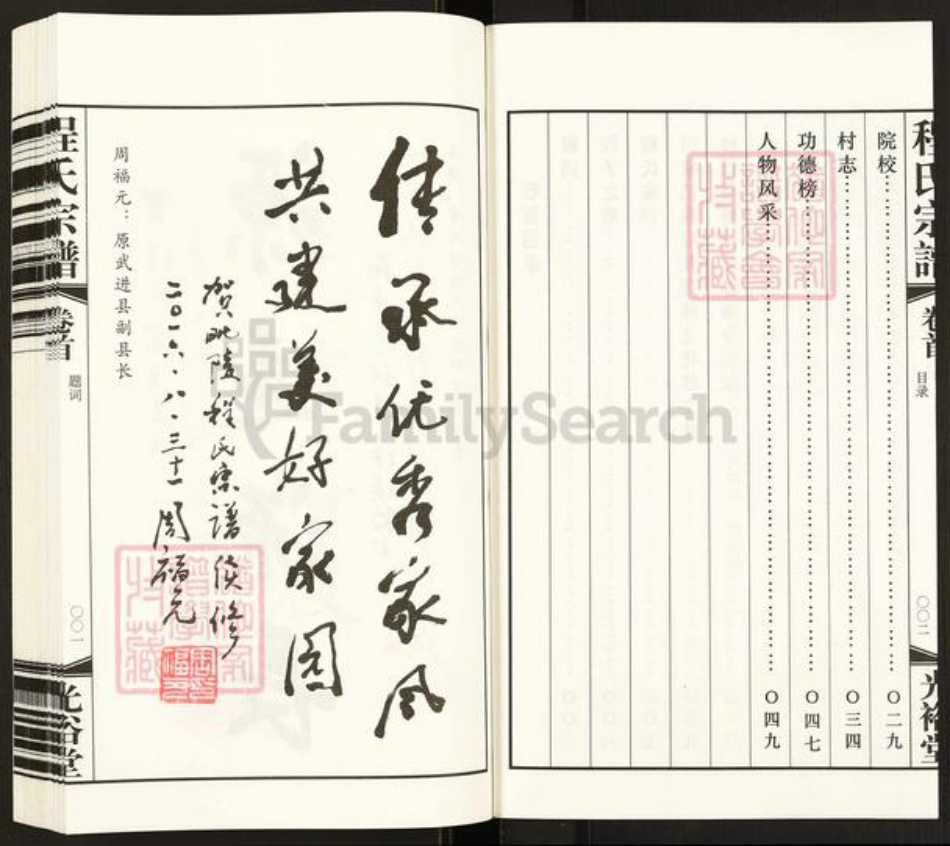 程氏宗譜
卷首
目录
〇〇二
光裕堂
院校……〇二九
村志……〇三四
功德榜……〇四七
人物风采……〇四九
FamilySearch
传承优秀家风
共建美好家园
贺毗陵程氏宗谱续修
二〇一六.八.三十一 周福元
周福元：原武进县副县长
程氏宗譜
卷首
题词
〇〇一
光裕堂